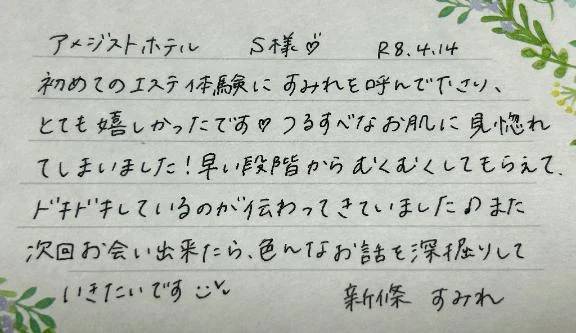 アメジストホテル S様♡ R8.4.14
初めてのエステ体験に すみれを呼んで下さり、
とても嬉しかったです♡ つるすべなお肌に見惚れ
てしまいました！早い段階から むくむくしてもらえて、
ドキドキしているのが伝わってきていました♪また
次回お会い出来たら、色んなお話を深掘りして
いきたいです
新條 すみれ